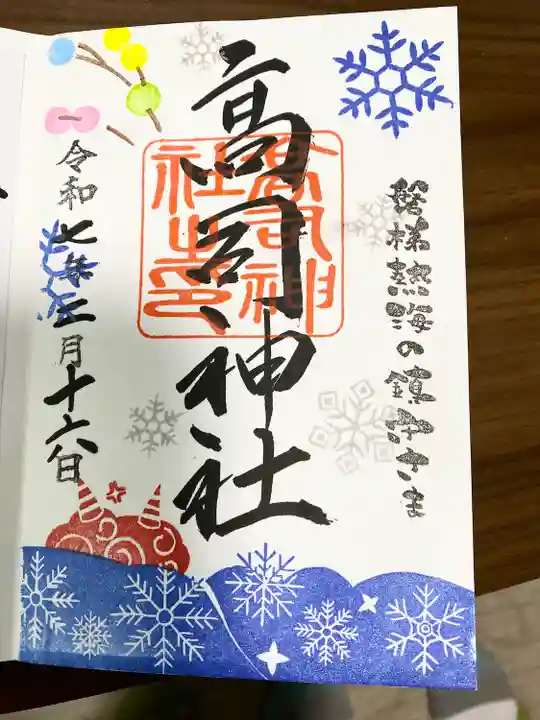 磐梯熱海の鎮守さま
高司神社
高司神
社之印
令和七年二月十六日